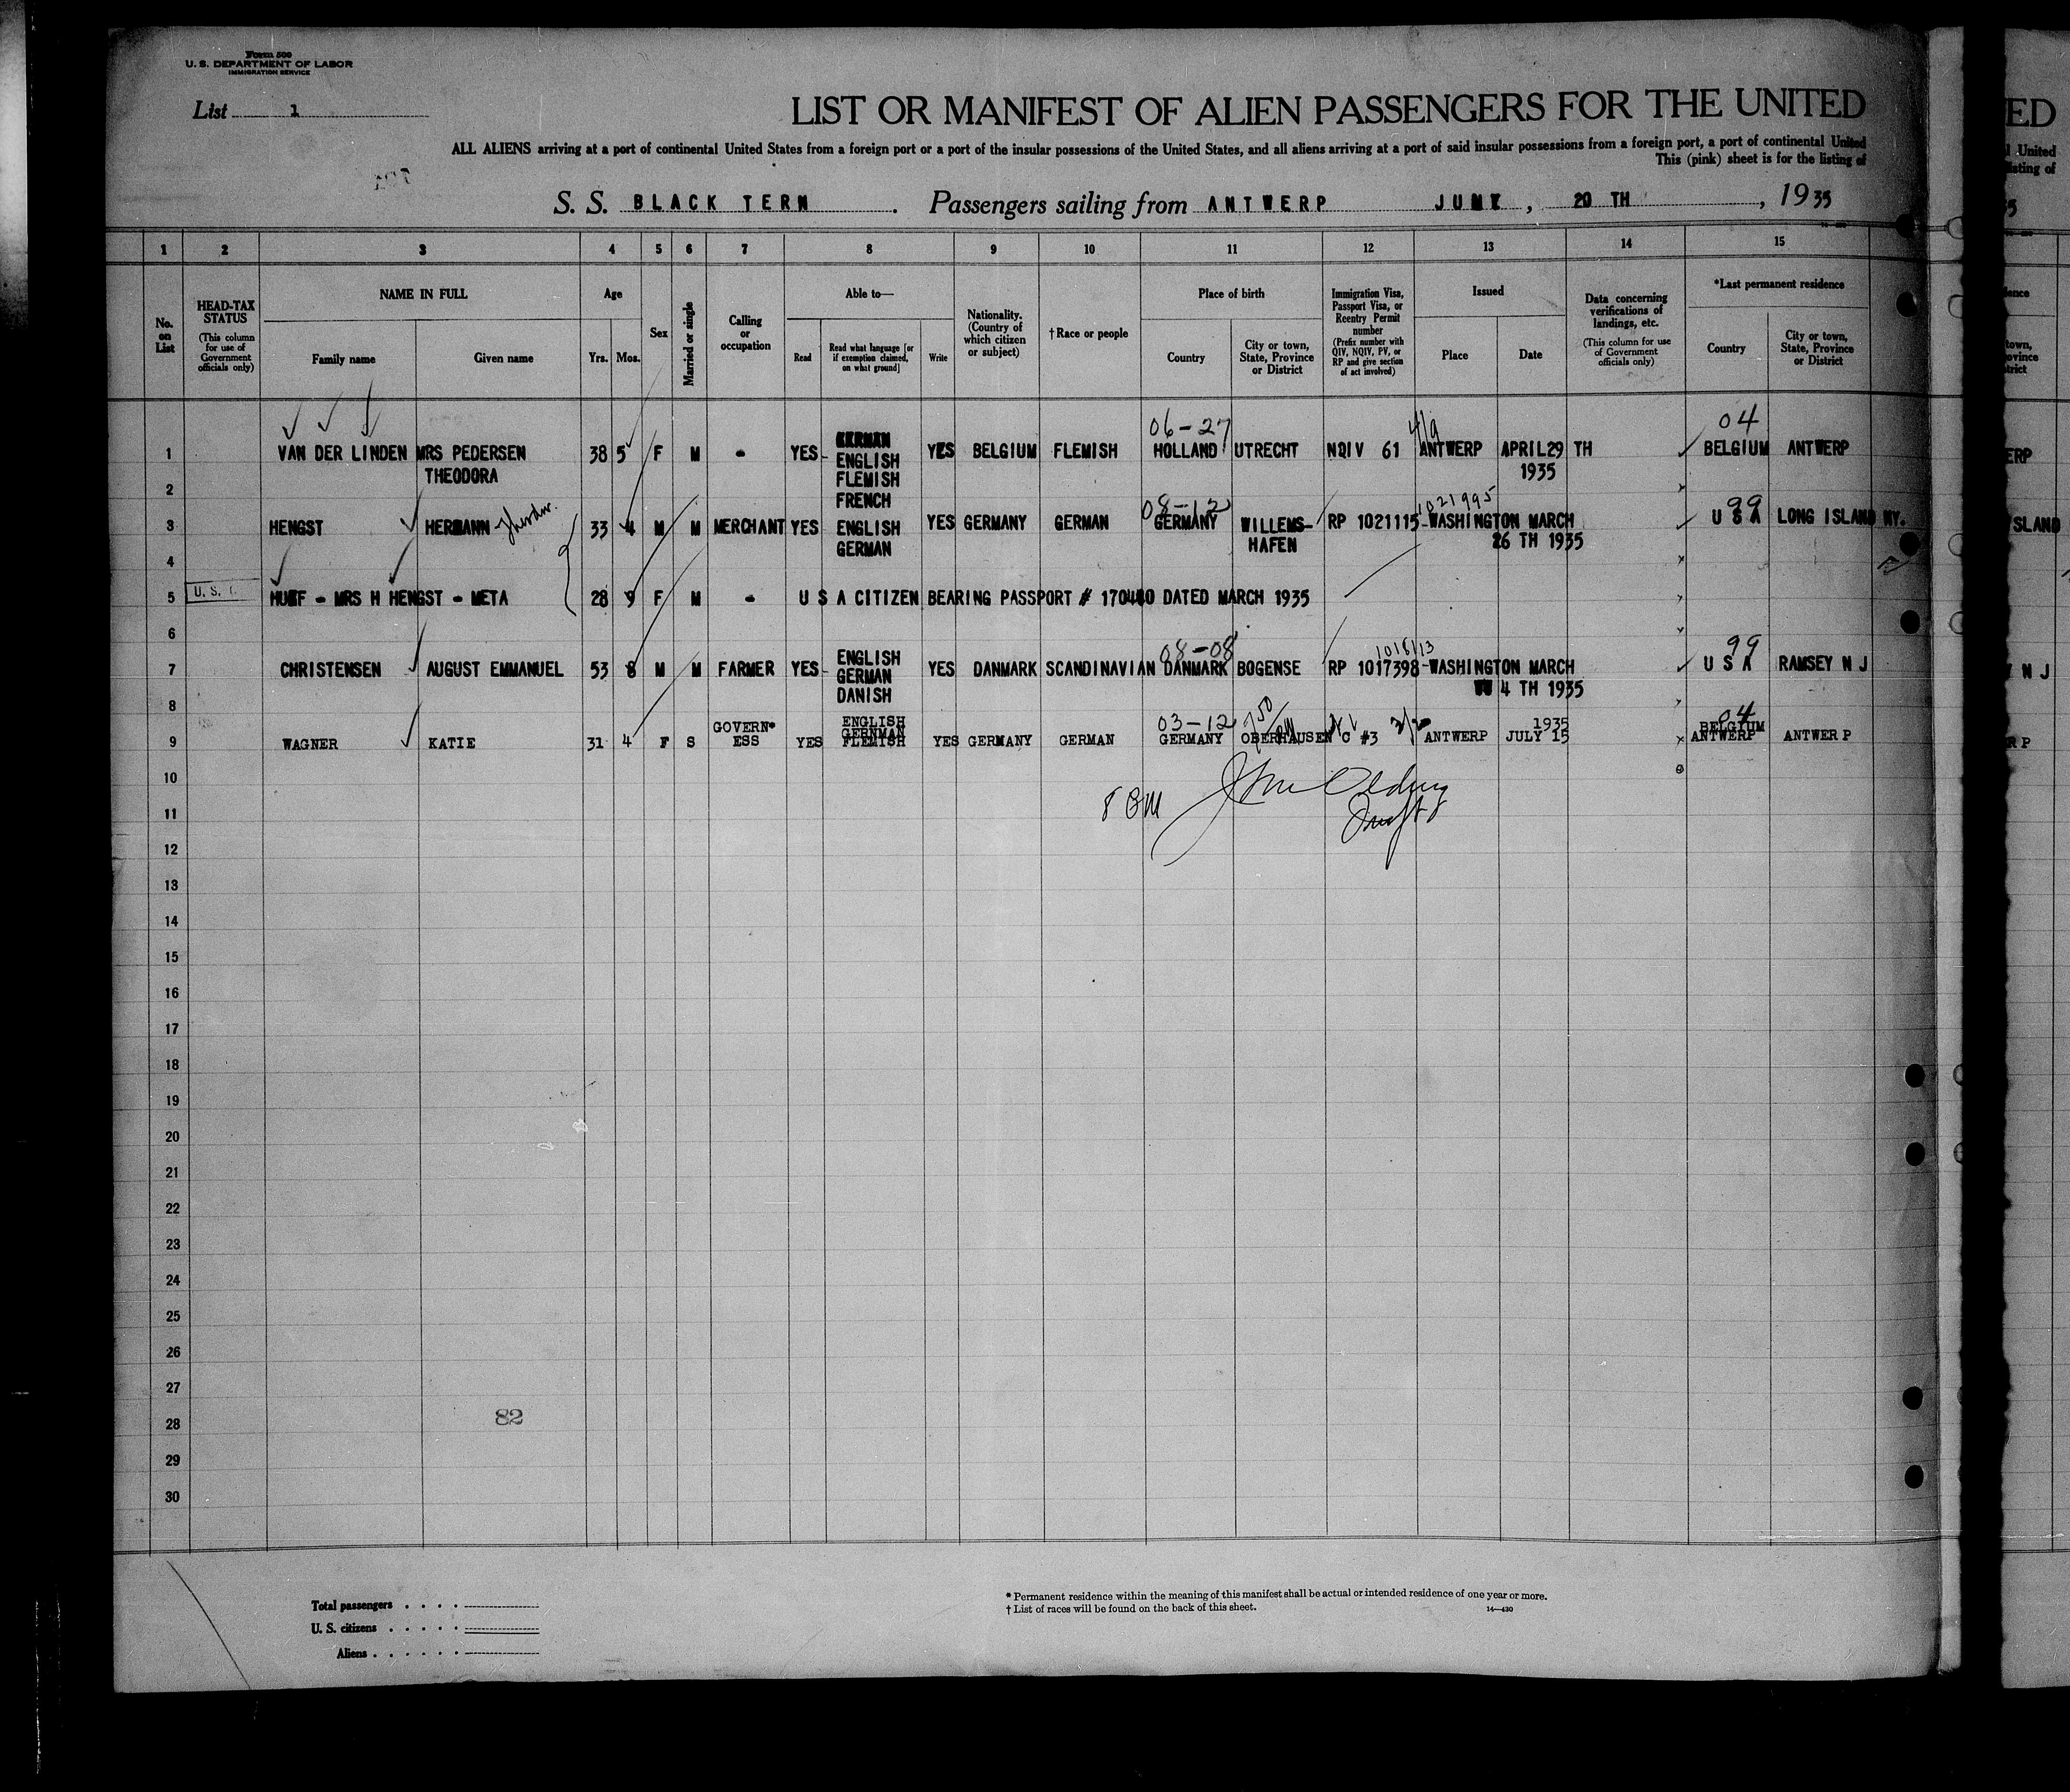 Form 500
U. S. DEPARTMENT OF LABOR
IMMIGRATION SERVICE
List 1
LIST OR MANIFEST OF ALIEN PASSENGERS FOR THE UNITED
ALL ALIENS arriving at a port of continental United States from a foreign port or a port of the insular possessions of the United States, and all aliens arriving at a port of said insular possessions from a foreign port, a port of continental United
This (pink) sheet is for the listing of
S. S. BLACK TERN . Passengers sailing from ANTWERP , 20 TH , 1935
1 2 3 4 5 6 7 8 9 10 11 12 13 14 15
No. on List
HEAD-TAX STATUS
(This column for use of Government officials only)
NAME IN FULL
Family name
Given name
Age
Yrs. Mos.
Sex
Married or single
Calling or occupation
Able to—
Read
Read what language [or if exemption claimed, on what ground]
Write
Nationality. (Country of which citizen or subject)
†Race or people
Place of birth
Country
City or town, State, Province or District
Immigration Visa, Passport Visa, or Reentry Permit number
(Prefix number with QIV, NQIV, PV, or RP and give section of act involved)
Issued
Place
Date
Data concerning verifications of landings, etc.
(This column for use of Government officials only)
*Last permanent residence
Country
City or town, State, Province or District
06-27 4/9 04
GERMAN
1 VAN DER LINDEN MRS PEDERSEN 38 5 F M - YES ENGLISH YES BELGIUM FLEMISH HOLLAND UTRECHT NQIV 61 ANTWERP APRIL 29 TH BELGIUM ANTWERP
THEODORA FLEMISH 1935
2 FRENCH
08-12 1021995 99
3 HENGST HERMANN 33 4 M M MERCHANT YES ENGLISH YES GERMANY GERMAN GERMANY WILLEMS- RP 1021115 WASHINGTON MARCH U S A LONG ISLAND NY.
GERMAN HAFEN 26 TH 1935
4
5 U. S. - MRS H HENGST - META 28 9 F M - U S A CITIZEN BEARING PASSPORT # DATED MARCH 1935
6
08-08 101613 99
ENGLISH
7 CHRISTENSEN AUGUST EMMANUEL 53 8 M M FARMER YES GERMAN YES DANMARK SCANDINAVIAN DANMARK BOGENSE RP 1017398 WASHINGTON MARCH U S A RAMSEY N J
DANISH 4 TH 1935
8
03-12 04
GOVERN- ENGLISH 1935 BELGIUM
GERMAN
9 WAGNER KATIE 31 4 F S ESS YES FLEMISH YES GERMANY GERMAN GERMANY OBERHAUSEN C #3 ANTWERP JULY 15 ANTWERP ANTWERP
10
11
12
13
14
15
16
17
18
19
20
21
22
23
24
25
26
27
28
82
29
30
Total passengers
U. S. citizens
Aliens
* Permanent residence within the meaning of this manifest shall be actual or intended residence of one year or more.
† List of races will be found on the back of this sheet.
14—430